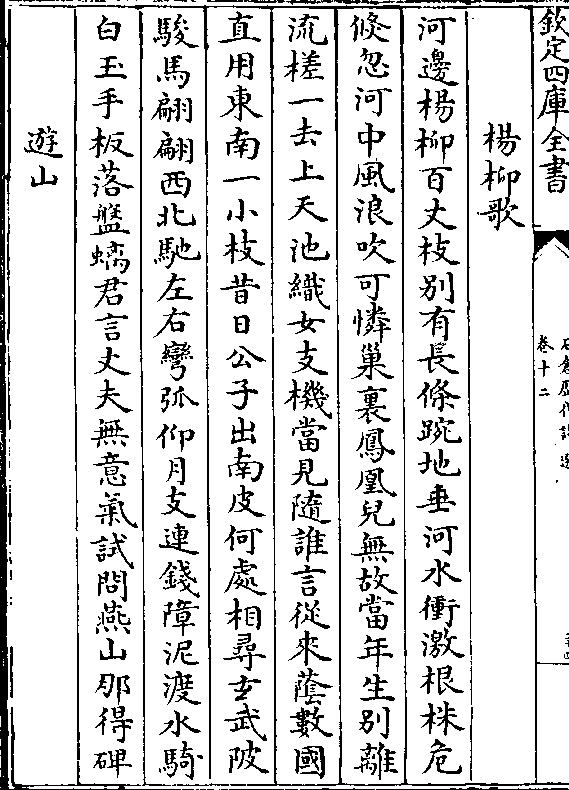 欽定四庫全書
卷十二
楊柳歌
河邊楊柳百丈枝别有長條踠地垂河水衝激根株危
倐忽河中風浪吹可憐巢裏鳳凰兒無故當年生别離
流槎一去上天池織女支機當見隨誰言從來蔭數國
直用東南一小枝昔日公子出南皮何處相尋玄武陂
駿馬翩翩西北馳左右彎弧仰月支連錢障泥渡水騎
白玉手板落盤螭君言丈夫無意氣試問燕山那得碑
遊山